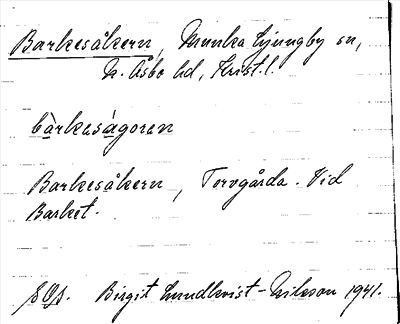 Barkesåkern, Munka Ljungby sn,
N. Åsbo hd, Krist. l.
bàrkaságoren
Barkesåkern, Torvgårda. Vid
Barket.
Birgit Lundkvist-Nilsson 1941.